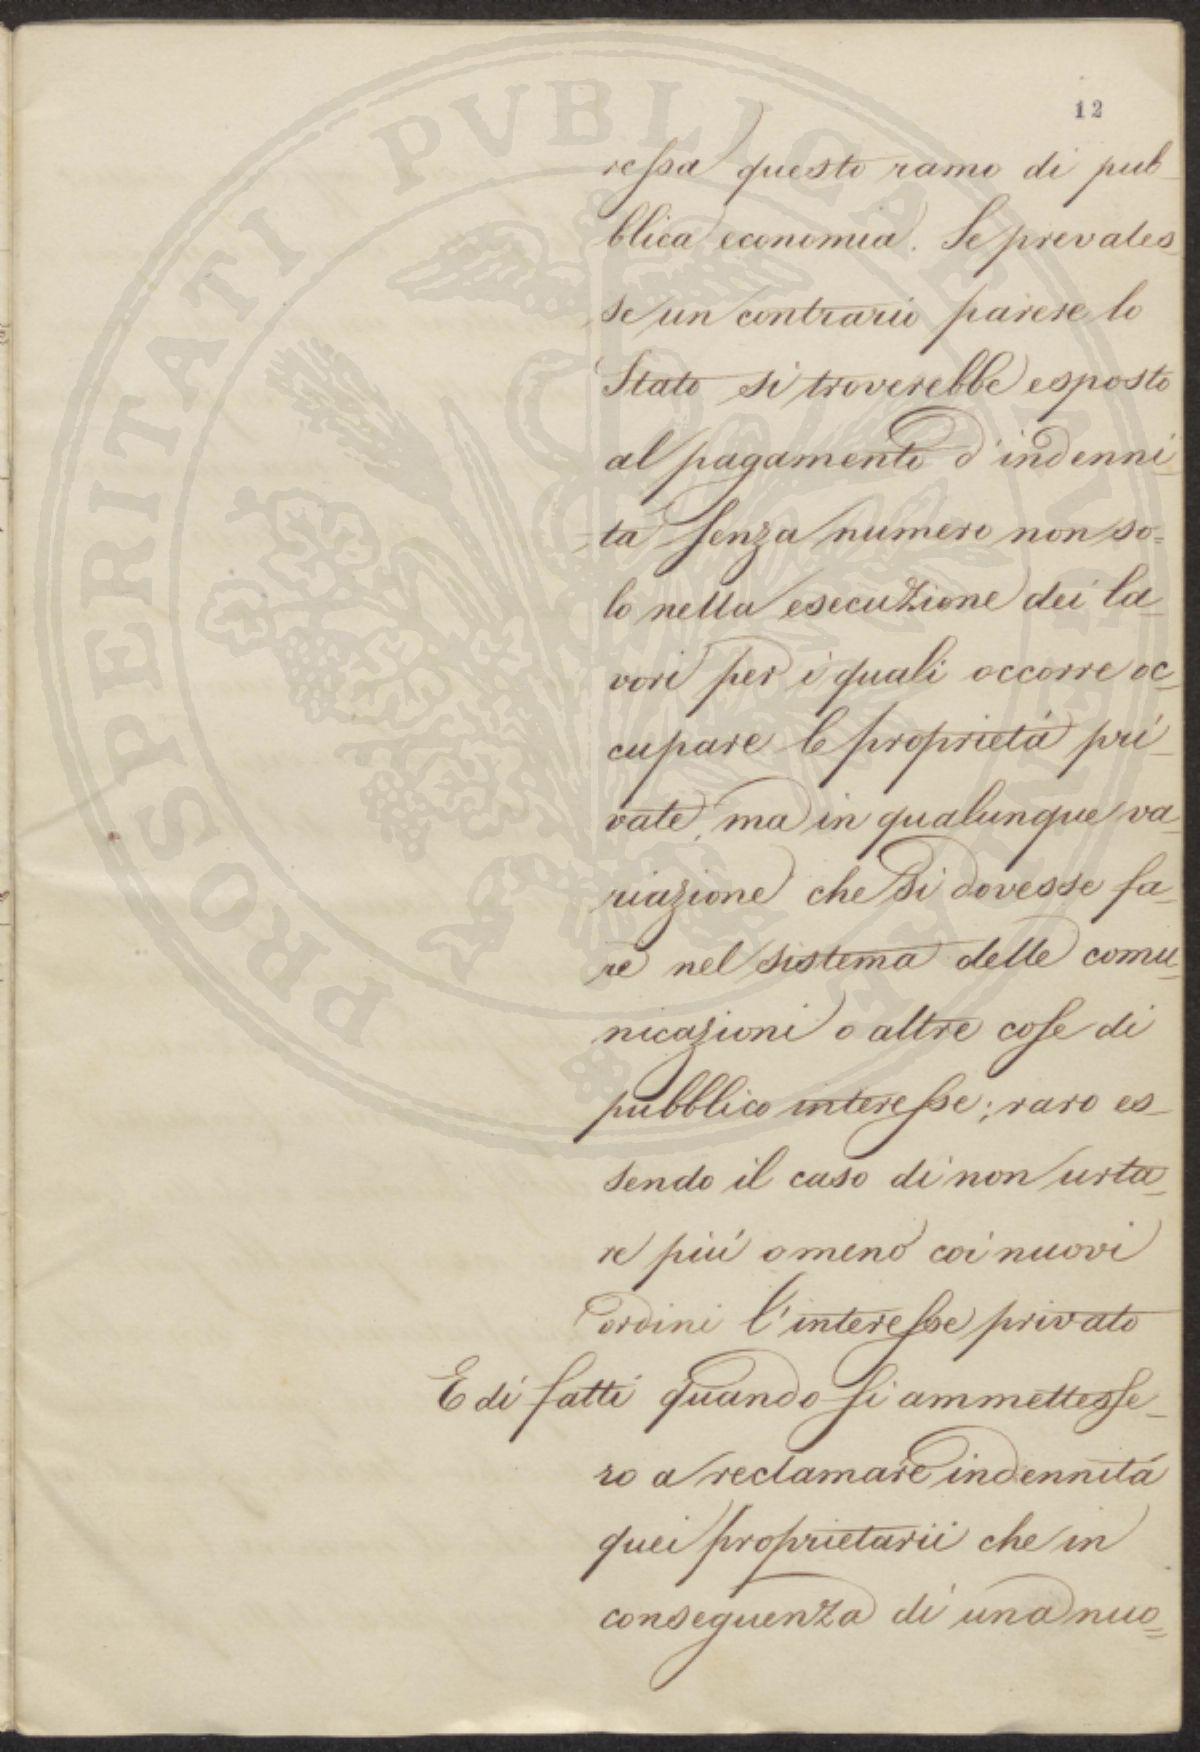 12
ressa questo ramo di pub-
blica economia. Se prevales-
se un contrario parere lo
Stato si troverebbe esposto
al pagamento d'indenni-
tà senza numero non so=
lo nella esecuzione dei la-
vori per i quali occorre oc-
cupare le proprietà pri-
vate, ma in qualunque va-
riazione che si dovesse fa-
re nel sistema delle comu-
nicazioni o altre cose di
pubblico interesse; raro es-
sendo il caso di non urta-
re più o meno coi nuovi
ordini l'interesse privato
E di fatti quando si ammettesse-
ro a reclamare indennità
quei proprietarii che in
conseguenza di una nuo=
PROSPERITATI PVBLICAE AVGENDAE